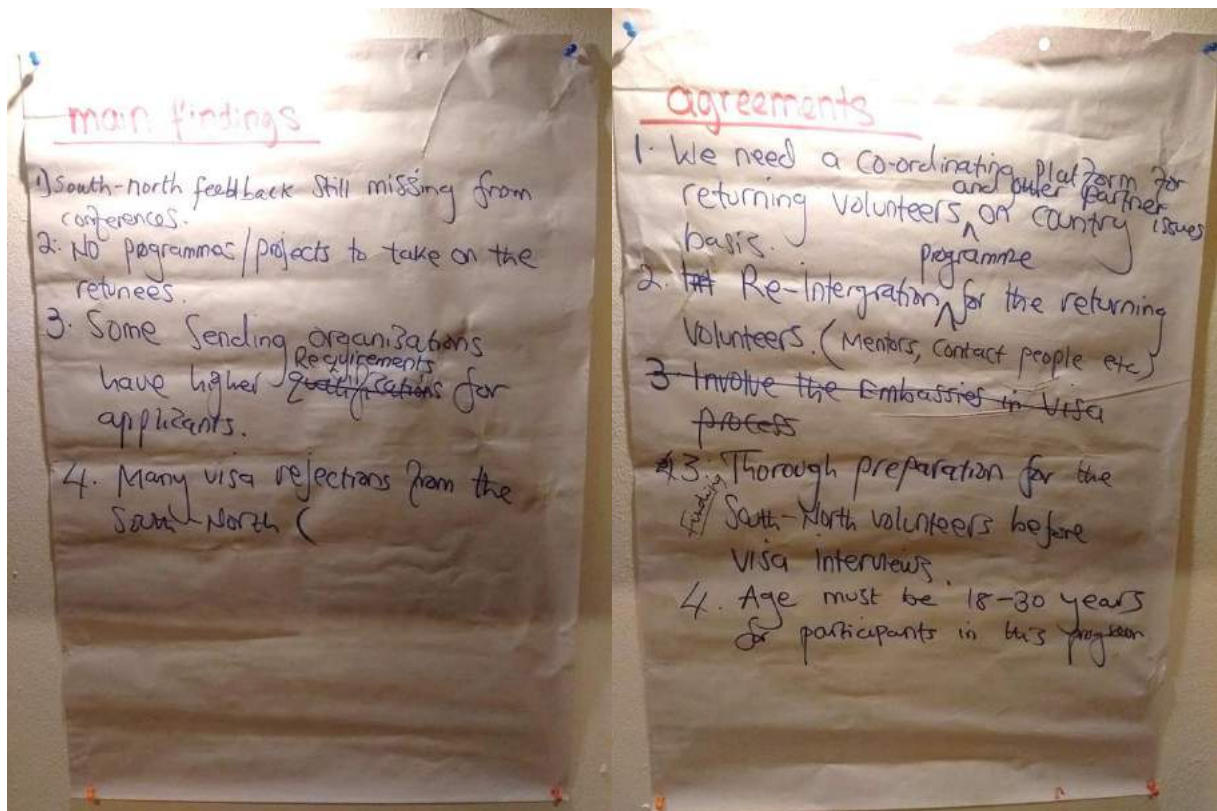 main findings
1) South-north feedback still missing from
conferences.
2. No programmes/projects to take on the
retunees.
3. Some Sending organisations
have higher Requirements for
applicants.
4. Many visa rejections from the
South-North (
agreements
1. We need a Co-ordinating Platform for
returning volunteers and other partner issues on country
basis.
2. Re-Intergration programme for the returning
Volunteers. (Mentors, contact people etc)
3 Involve the Embassies in Visa
process
3. Thorough preparation for the
South-North volunteers before
visa interviews.
4. Age must be 18-30 years
for participants in this